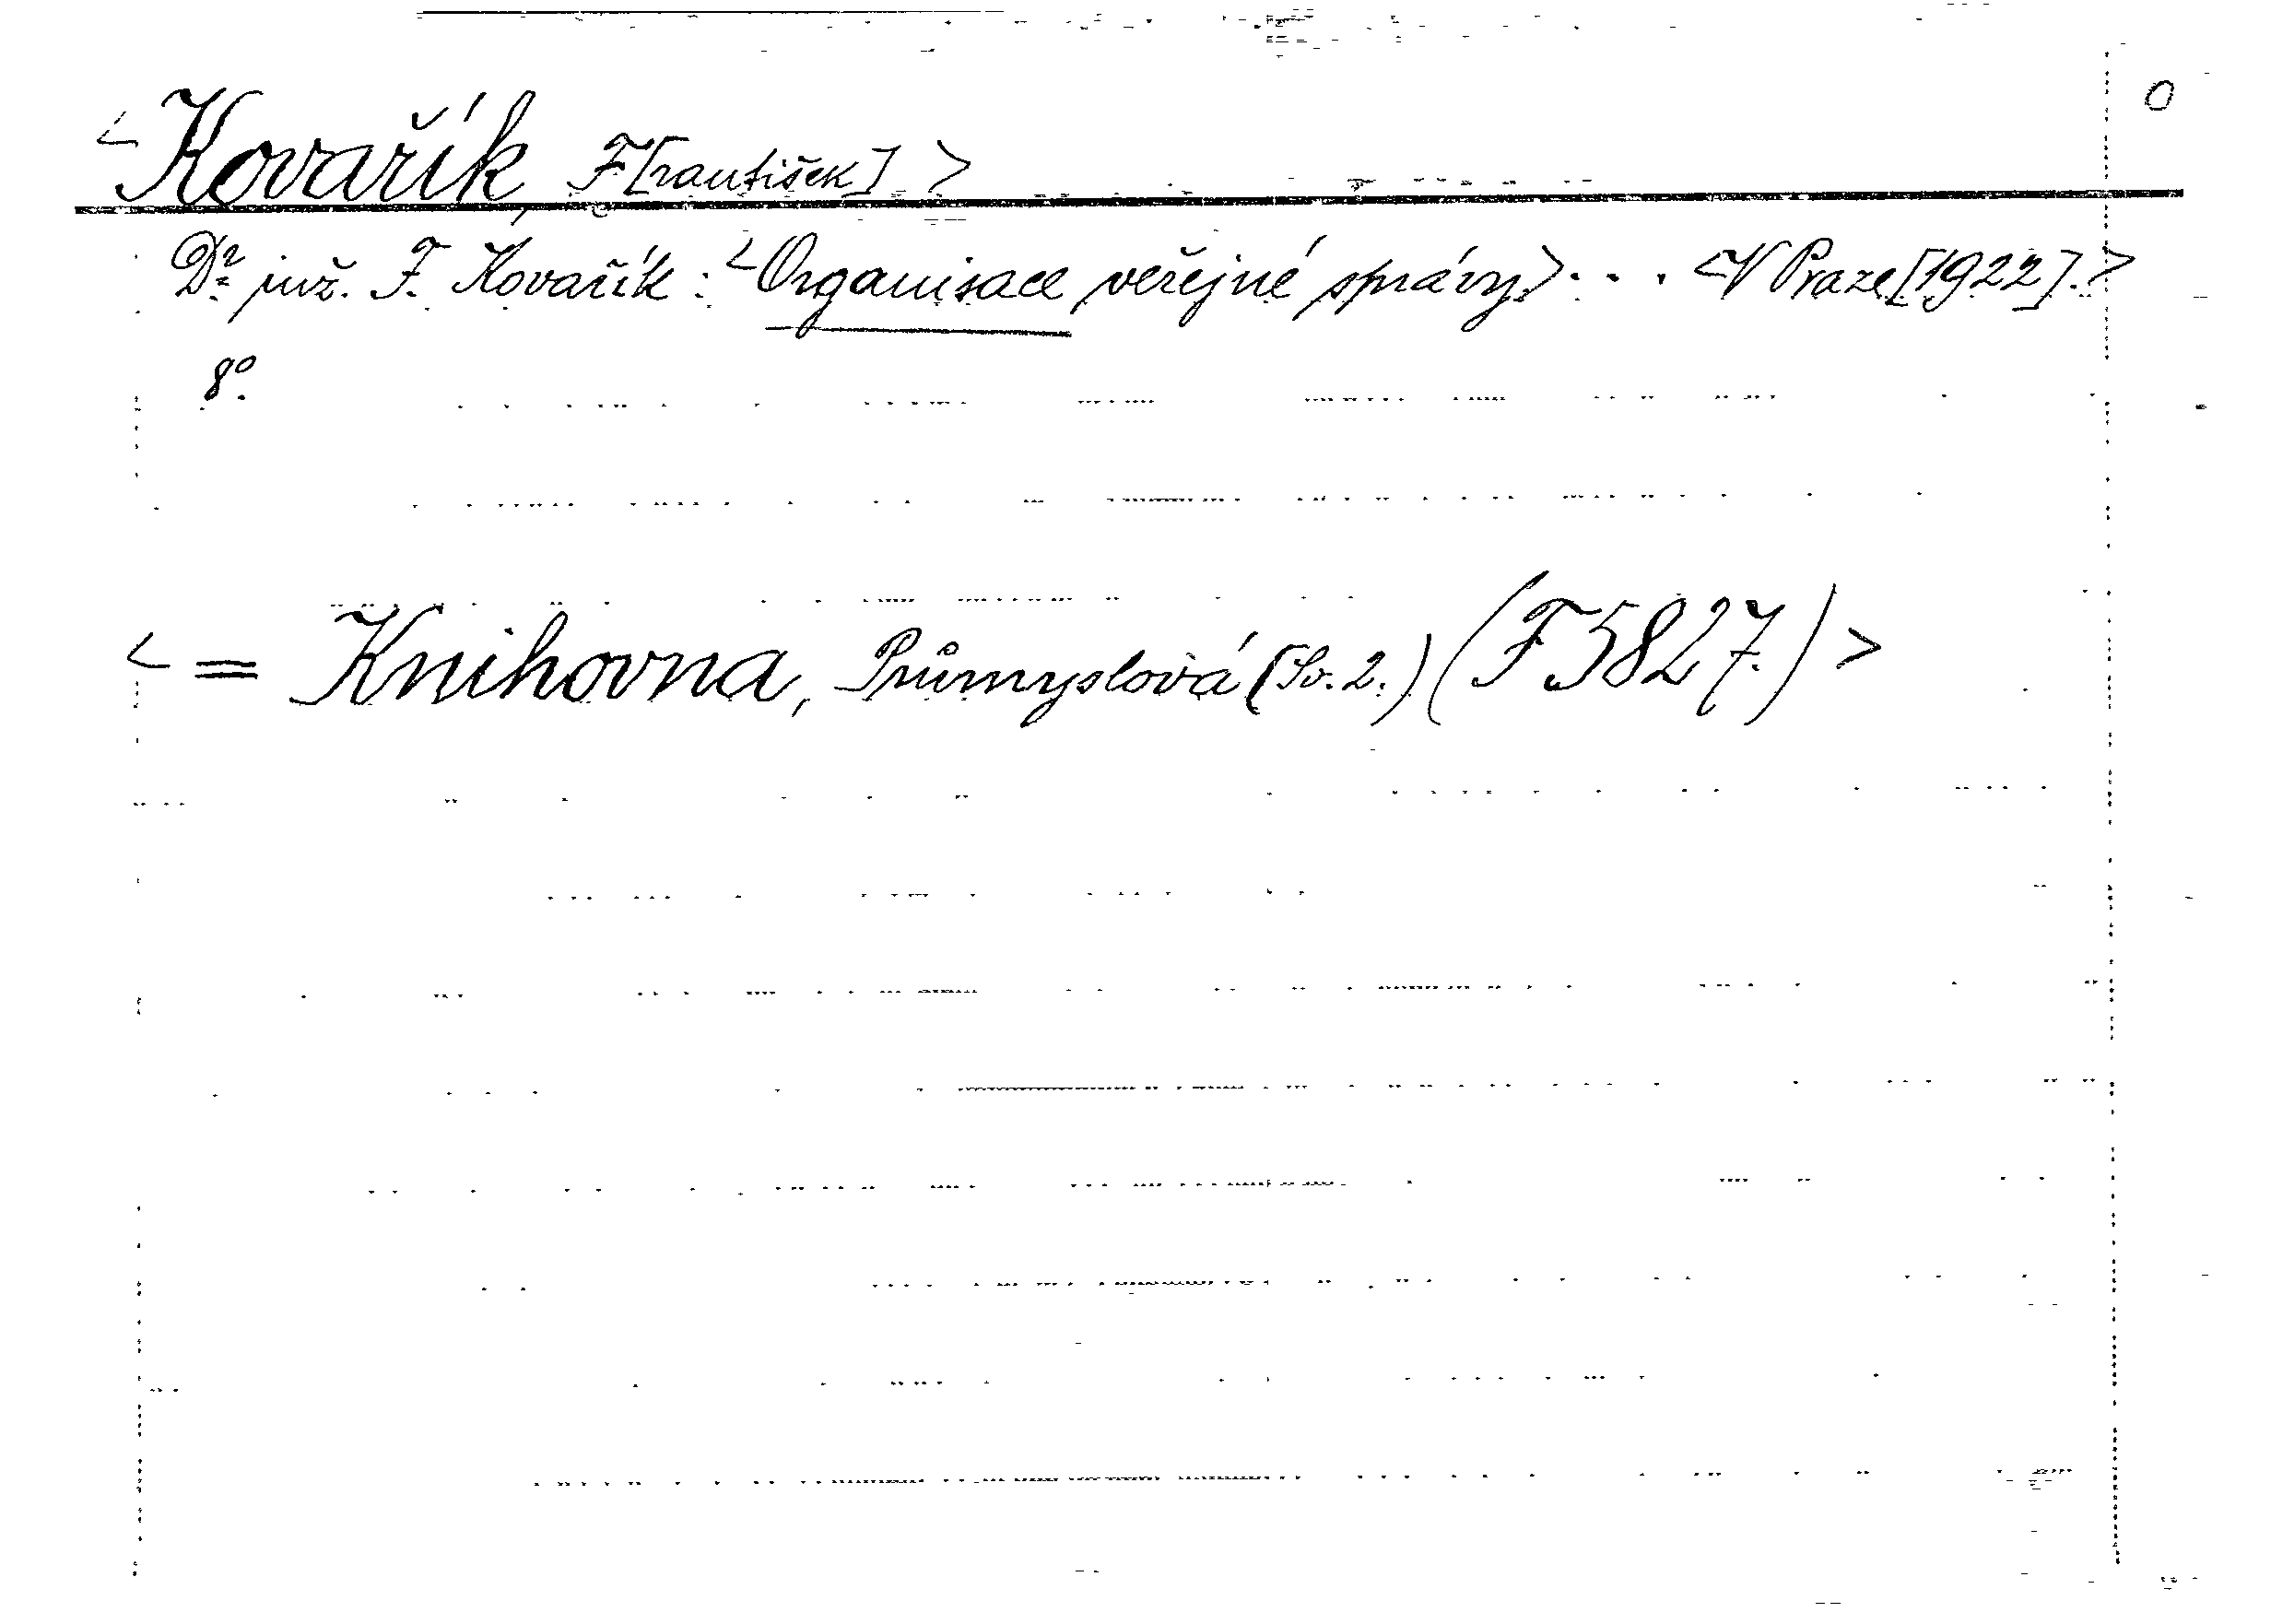 <Kovařík, F[rantišek]> O
Dr. inž. F. Kovařík: <Organisace veřejné správy>... <V Praze [1922].>
8°.
<= Knihovna, Průmyslová (Sv. 2.) (F 5827.)>